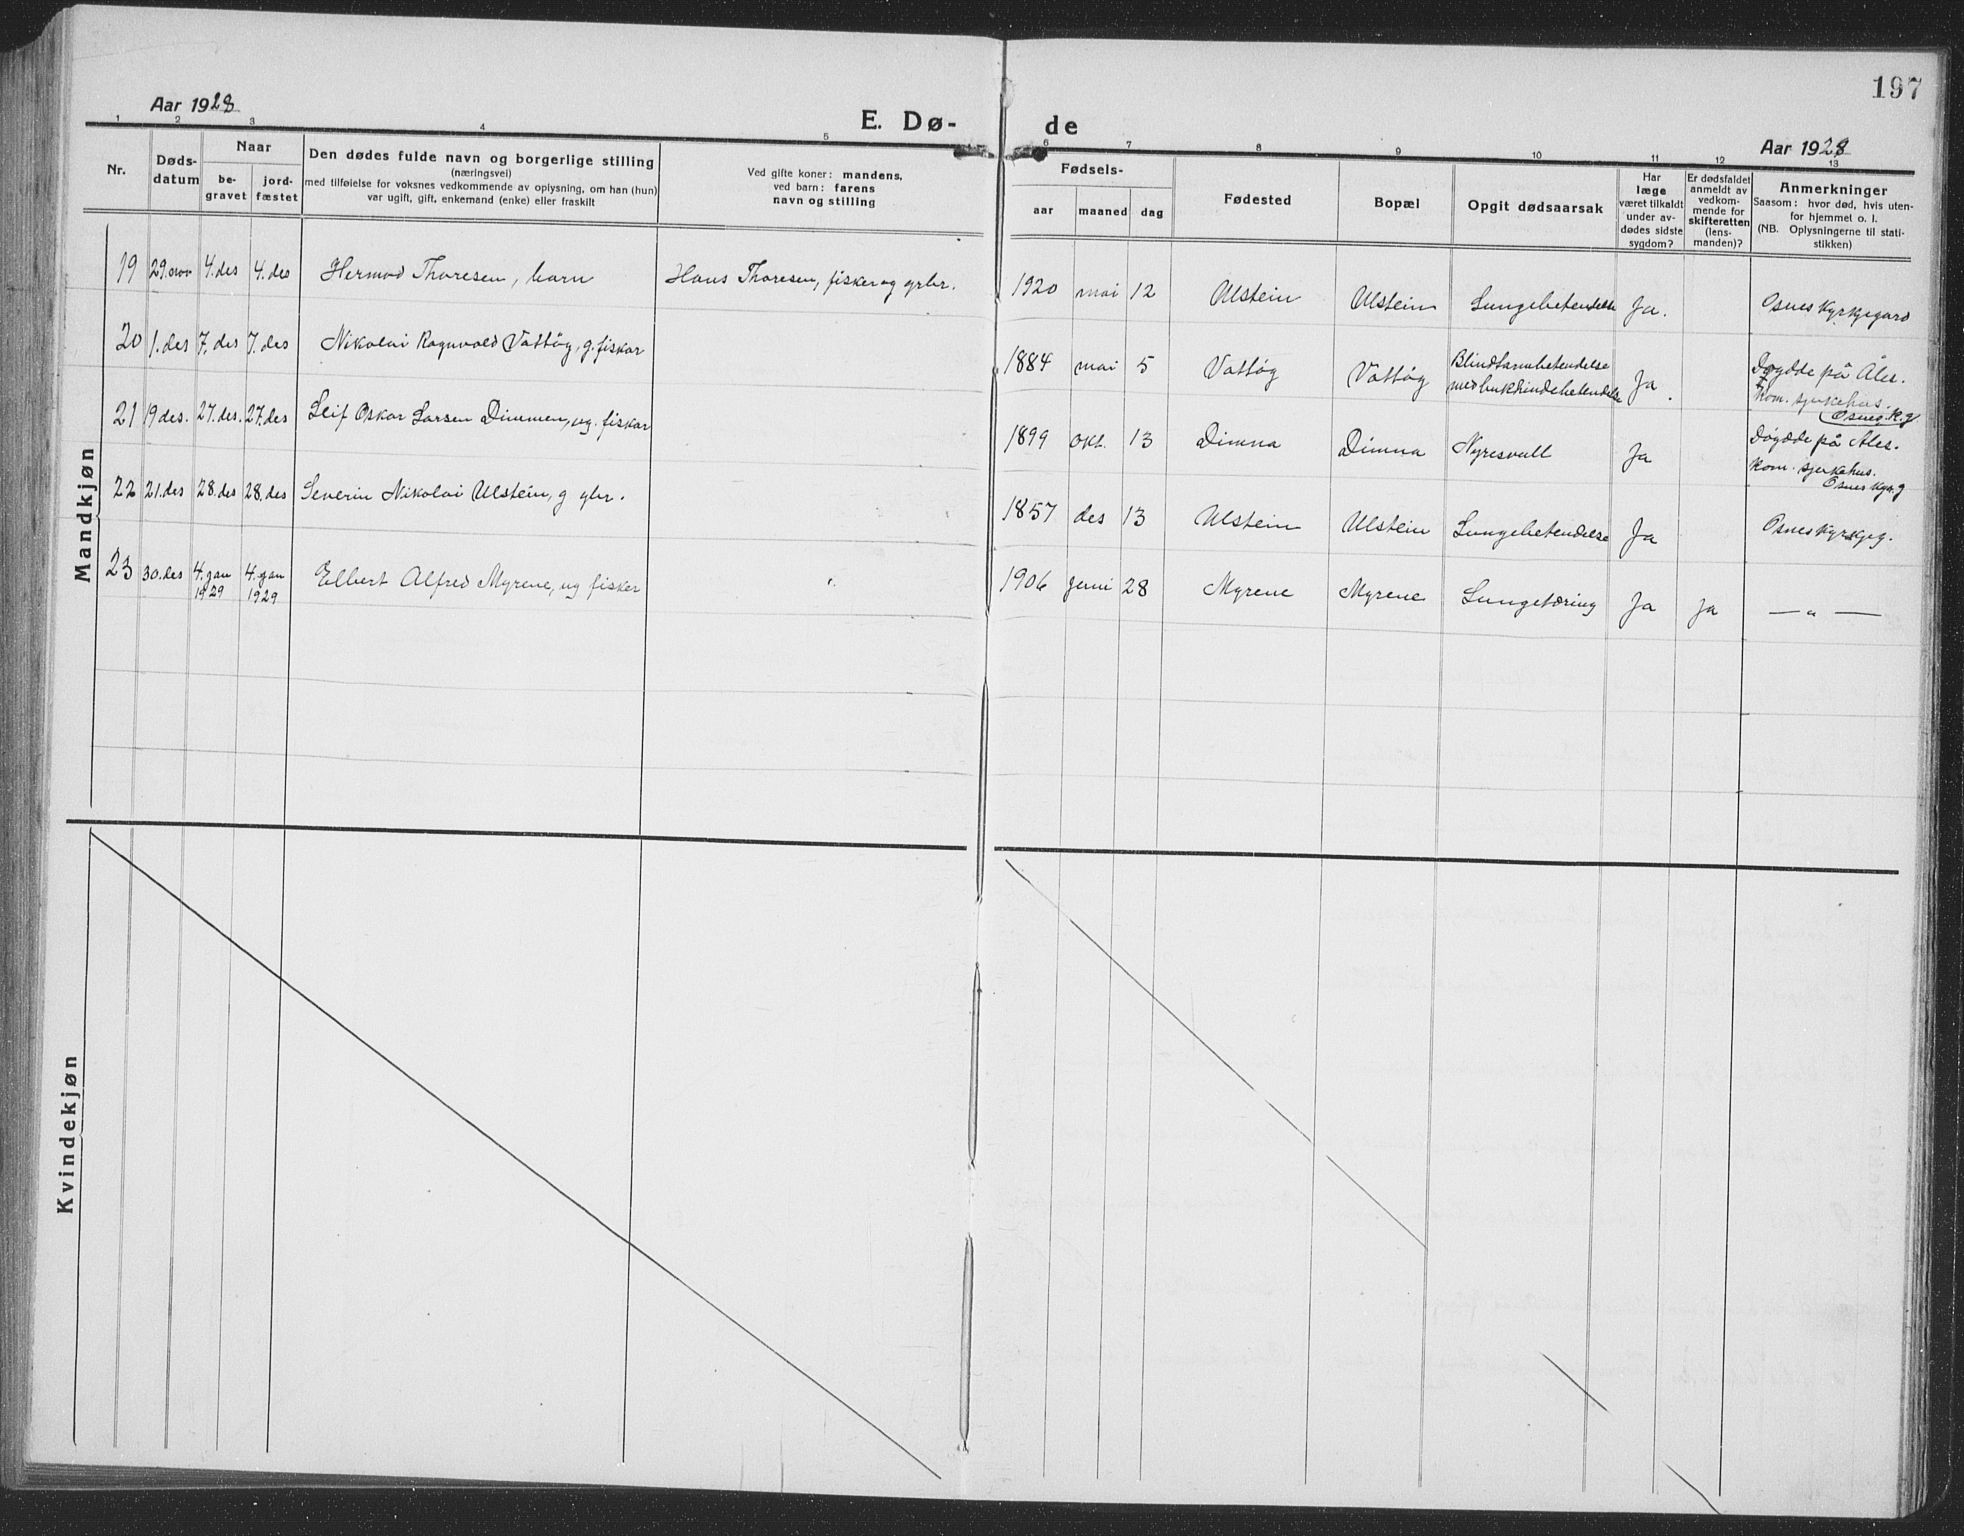 197
Aar 1928
E. Dø-
de
Aar 1928
1 2 3 4 5 6 7 8 9 10 11 12 13
Nr.
Døds-
datum
Naar
be-
gravet
jord-
fæstet
Den dødes fulde navn og borgerlige stilling
(næringsvei)
med tilføielse for voksnes vedkommende av oplysning, om han (hun)
var ugift, gift, enkemand (enke) eller fraskilt
Ved gifte koner: mandens,
ved barn: farens
navn og stilling
Fødsels-
aar maaned dag
Fødested
Bopæl
Opgit dødsaarsak
Har
læge
været tilkaldt
under av-
dødes sidste
sygdom?
Er dødsfaldet
anmeldt av
vedkom-
mende for
skifteretten
(lens-
manden)?
Anmerkninger
Saasom: hvor død, hvis uten-
for hjemmet o. l.
(NB. Oplysningerne til stati-
stikken)
Mandkjøn
19 29. nov 4. des 4. des Hermod Thoresen, barn Hans Thoresen, fisker og grbr. 1920 mai 12 Ulstein Ulstein Lungebetendelse Ja. Osnes Kyrkjegard
20 1. des 7. des 7. des Nikolai Ragnvald Vattøy, g. fiskar 1884 mai 5 Vattøy Vattøy Blindtarmbetendelse
med bukhindebetendelse Ja. Døydde på Åles.
Kom. sjukehus.
Osnes K.g
21 19 des. 27. des. 27. des Leif Oskar Larsen Dimmen, ug. fiskar 1899 okt. 13 Dimna Dimna Nyresvull Ja Døydde på Åles.
Kom. sjukehus.
Osnes Kyr. g
22 21. des 28. des 28. des Severin Nikolai Ulstein, g gbr. 1857 des 13 Ulstein Ulstein Lungebetendelse Ja Osnes Kyrkjeg.
23 30. des 4. jan
1929 4. jan
1929 Elbert Alfred Myrene, ug fisker " 1906 juni 28 Myrene Myrene Lungetæring Ja Ja — " —
Kvindekjøn